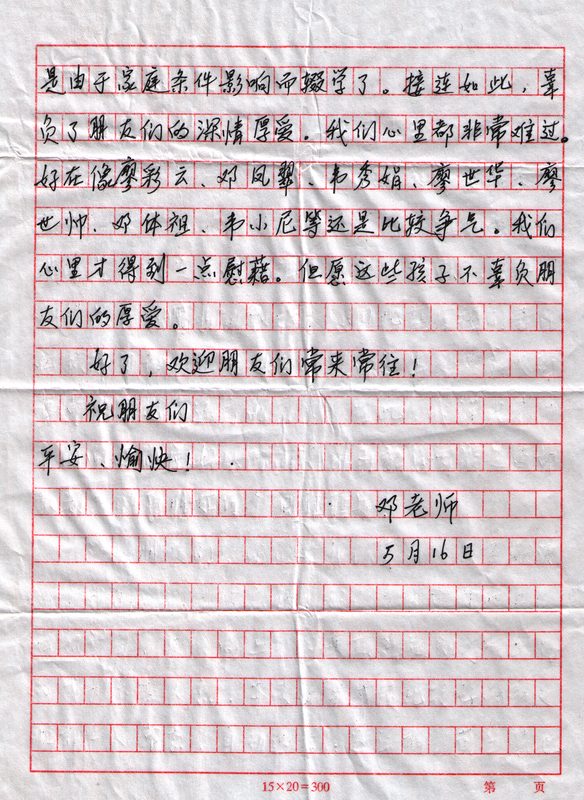 是由于家庭条件影响而辍学了。接连如此，辜
负了朋友们的深情厚爱。我们心里都非常难过。
好在像廖彩云、邓凤翠、韦秀娟、廖世华、廖
世帅、邓体祖、韦小尼等还是比较争气。我们
心里才得到一点慰藉。但愿这些孩子不辜负朋
友们的厚爱。
好了，欢迎朋友们常来常往！
祝朋友们
平安、愉快！
邓老师
5月16日
15×20=300
第 页